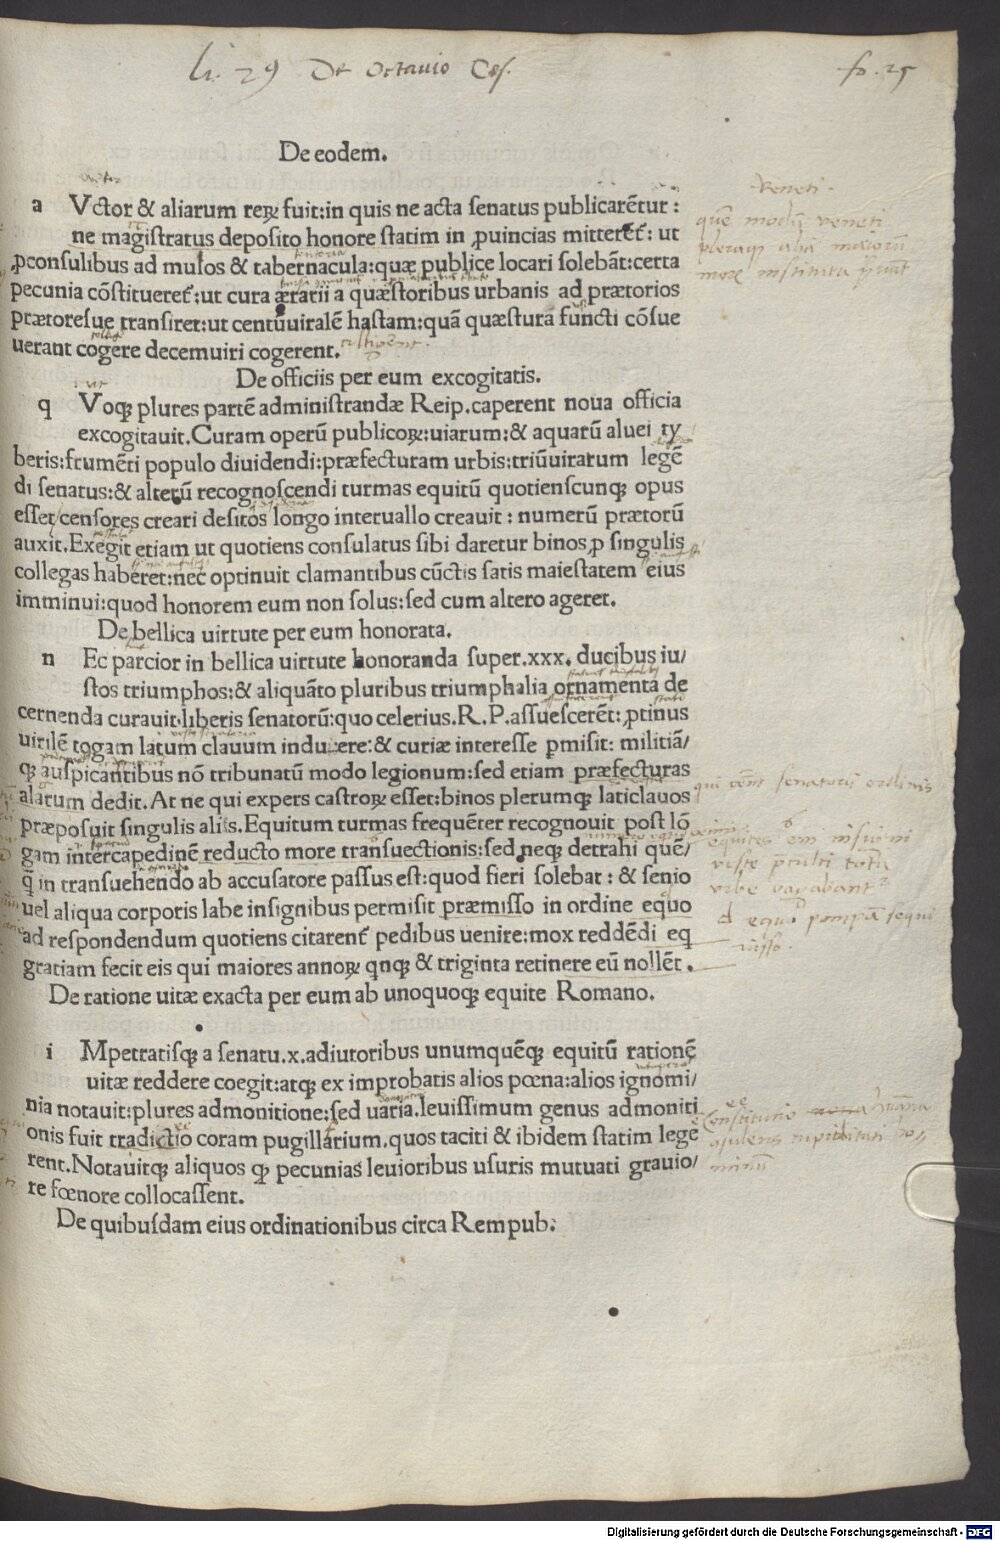 li. 29 De Octauio Ces.
fo. 25
De eodem.
a Vctor & aliarum reꝝ fuit:in quis ne acta ſenatus publicarētur :
ne magiſtratus depoſito honore ſtatim in ꝓuincias mitterēt: ut
ꝓconſulibus ad mulos & tabernacula:quæ publice locari ſolebāt:certa
pecunia cōſtitueret:ut cura ærarii a quæſtoribus urbanis ad prætorios
prætoreſue tranſiret:ut centūuiralē haſtam:quā quæſturā functi cōſue
uerant cogere decemuiri cogerent.
De officiis per eum excogitatis.
q Voqꝫ plures partē adminiſtrandæ Reip.caperent noua officia
excogitauit.Curam operū publicoꝝ:uiarum:& aquarū aluei ty
beris:frumēti populo diuidendi:præfecturam urbis:triūuiratum legē
di ſenatus:& alterū recognoſcendi turmas equitū quotienſcunqꝫ opus
eſſet/cenſores creari deſitos longo interuallo creauit : numerū prætorū
auxit.Exegit etiam ut quotiens conſulatus ſibi daretur binos ꝓ ſingulis
collegas haberet:nec optinuit clamantibus cūctis ſatis maieſtatem eius
imminui:quod honorem eum non ſolus:ſed cum altero ageret.
De bellica uirtute per eum honorata.
n Ec parcior in bellica uirtute honoranda ſuper.xxx. ducibus iu/
ſtos triumphos:& aliquāto pluribus triumphalia ornamenta de
cernenda curauit.liberis ſenatorū:quo celerius.R.P.aſſueſcerēt:ꝓtinus
uirilē togam latum clauum induere:& curiæ intereſſe ꝑmiſit: militiā/
qꝫ auſpicantibus nō tribunatū modo legionum:ſed etiam præfecturas
alarum dedit.At ne qui expers caſtroꝝ eſſet:binos plerumqꝫ laticlauos
præpoſuit ſingulis alis.Equitum turmas frequēter recognouit poſt lō
gam intercapedinē reducto more tranſuectionis:ſed neqꝫ detrahi quē/
q̄ in tranſuehendo ab accuſatore paſſus eſt:quod fieri ſolebat : & ſenio
uel aliqua corporis labe inſignibus permiſit præmiſſo in ordine equo
ad reſpondendum quotiens citarent pedibus uenire:mox reddēdi eq
gratiam fecit eis qui maiores annoꝝ qnqꝫ & triginta retinere eū nollēt.
De ratione uitæ exacta per eum ab unoquoqꝫ equite Romano.
i Mpetratiſqꝫ a ſenatu.x.adiutoribus unumquēqꝫ equitū rationē
uitæ reddere coegit:atqꝫ ex improbatis alios pœna:alios ignomi/
nia notauit:plures admonitione:ſed uaria.leuiſſimum genus admoniti
onis fuit tradictio coram pugillarium.quos taciti & ibidem ſtatim lege
rent.Notauitqꝫ aliquos qꝫ pecunias leuioribus uſuris mutuati grauio/
re fœnore collocaſſent.
De quibuſdam eius ordinationibus circa Rempub:
Veneti.
qui ... senatorii ordinis
Digitalisierung gefördert durch die Deutsche Forschungsgemeinschaft - DFG